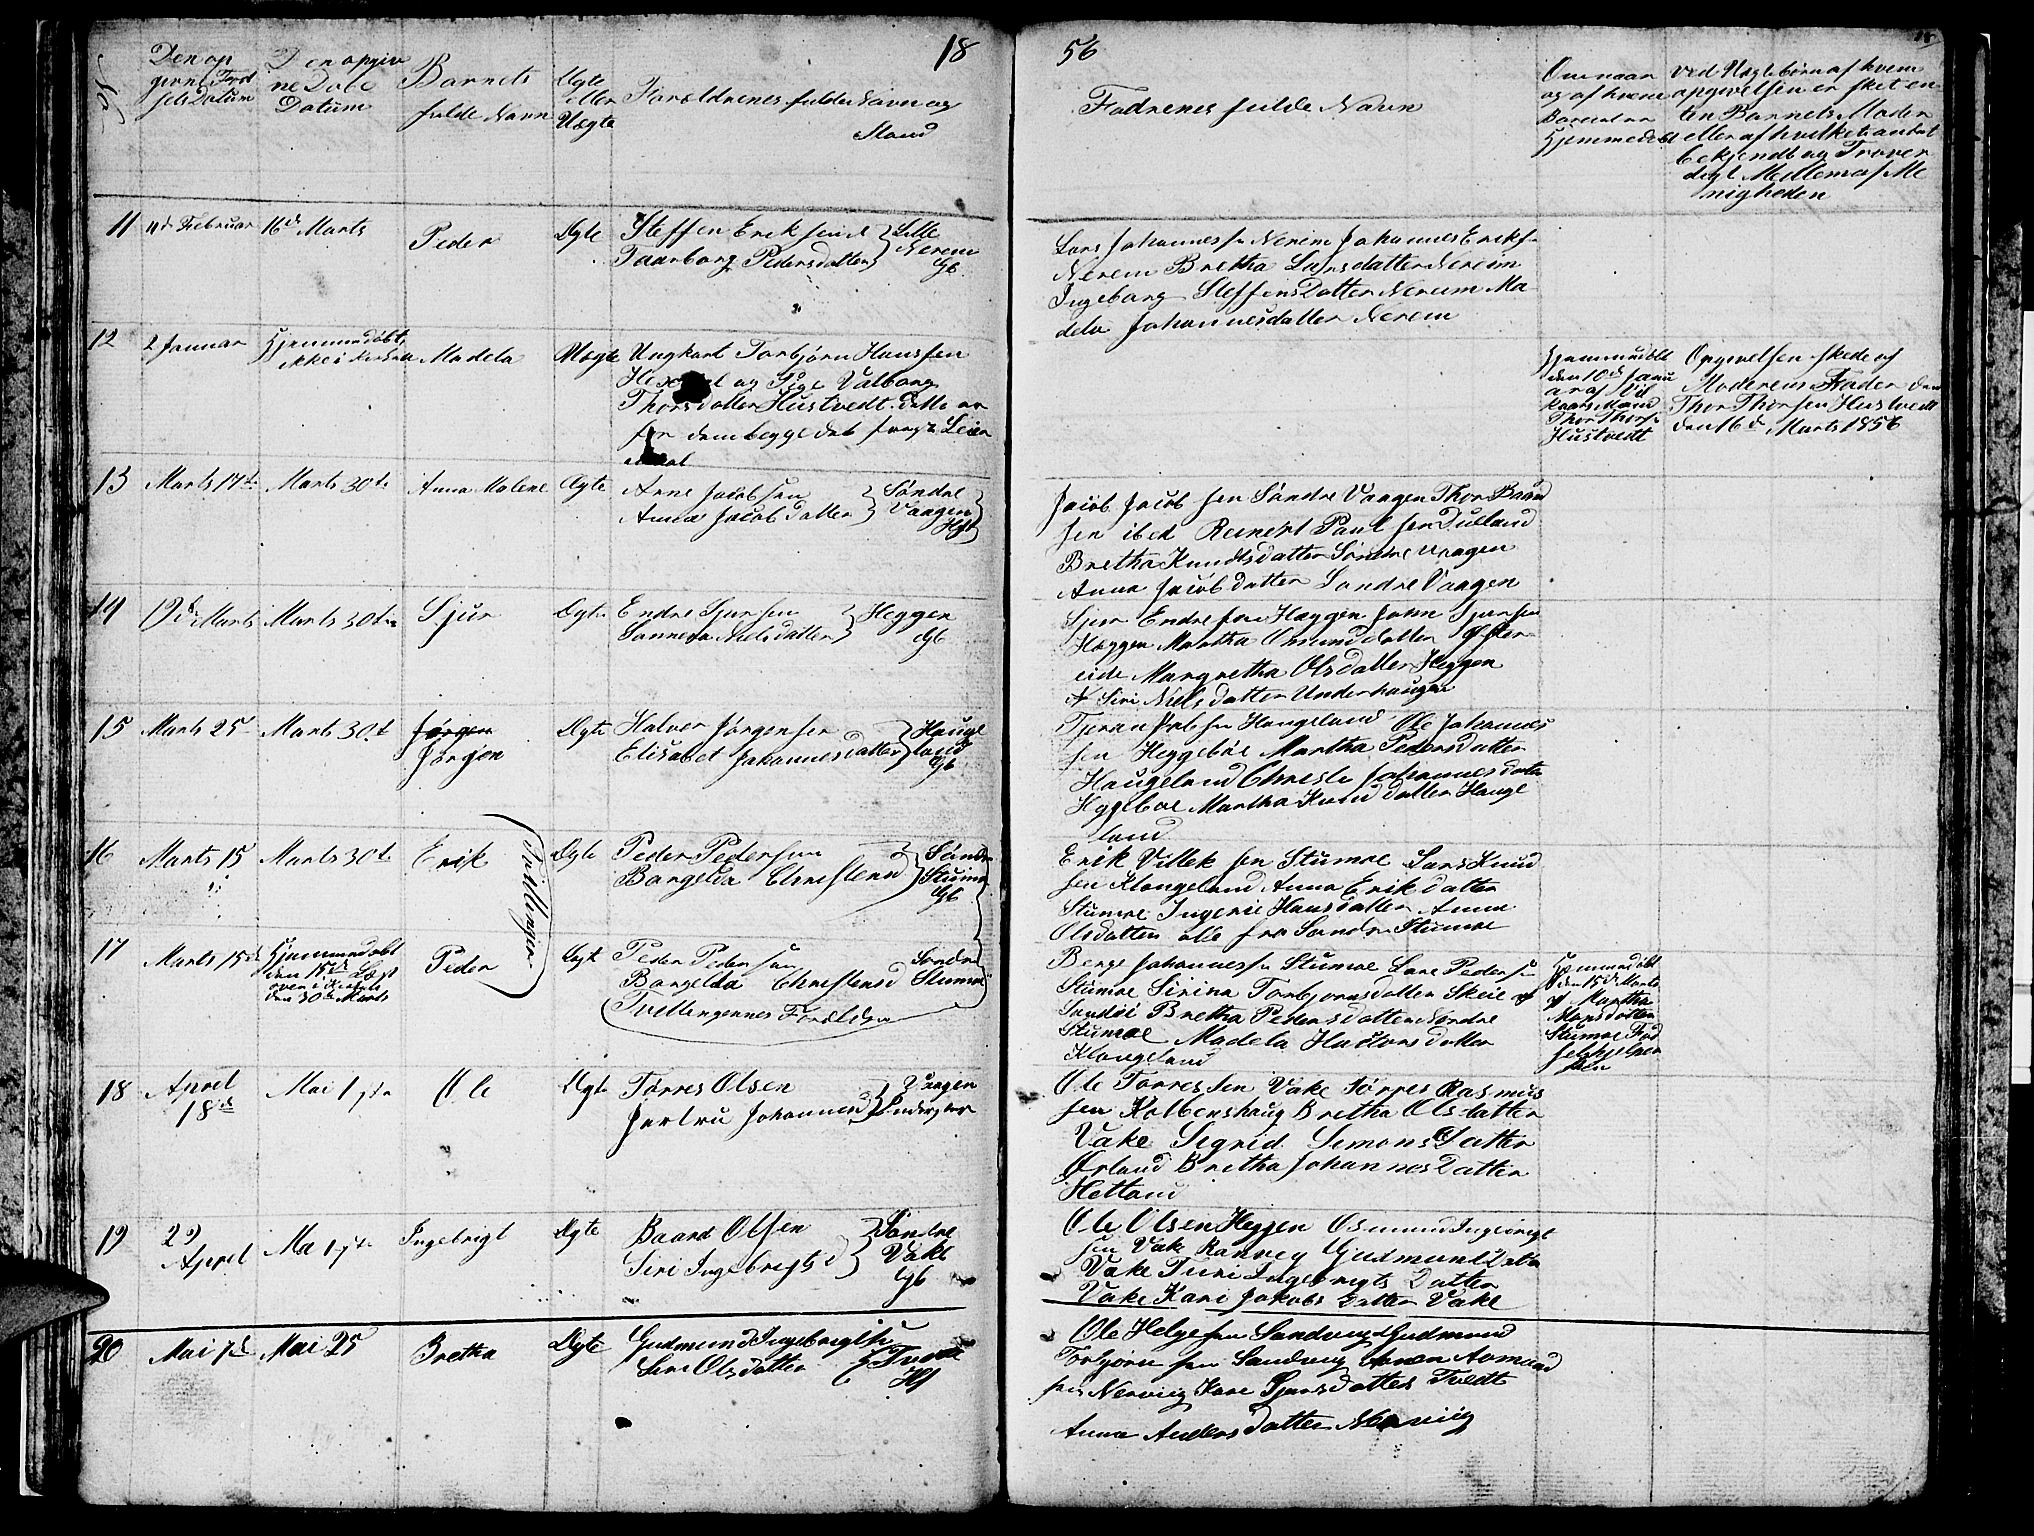 18
56
Den op
givne Fød
sels Datum
Den opgiv
ne Dobe
Datum
Barnets
fulde Navn
Ægte
eller
Uægte
Foræeldrenes fulde Navn og
Stand
Fadrenes fulde Navn
Om naar
og af hvem
Barnet er
Hjemmedøbt
ved Uægte børn af hvem
opgivelsen er sket en
ten Barnets Moder
eller af hvilket andet
bekjendt og Trover
digt Medlem af Me
nigheden
11
11d Februar
16d Marts
Peder
Ægte
Steffen Eriksen
Taarborg Pedersdatter
Lille
Nerem
Lars Johannes sn Nerim Johannes Eriks
Nerem Bretha Larsdatter Nereim
Ingeborg Steffens Datter Nereim Ma
dela Johannesdatter Nerem
12
2 Januar
Hjemmedøbt
ikke i Kirken
Madela
Uægte
Ungkarl Torbjørn Hanssen
og Pige Valborg
Thorsdatter Hustvedt dette er
for dem begge det første Leier
maal
Hjemmedøbt
den 10d Janu
ar af Vil
kaarsmand
Thor Thors
Hustvedt
Opgivelsen skede af
Moderens Fader den
Thor Thorsen Hustvedt
den 16d Marts 1856
13
Marts 17de
Marts 30te
Anna Malene
Ægte
Arne Jacobsen
Anna Jacobdatter
Søndre
Vaagen
Jacob Jacob sen Søndre Vaagen Thor Baard
sen ibid Reinert Paul sen Dueland
Bretha Knudtsdatter Søndre Vaagen
Anna Jacobdatter Søndre Vaagen
14
19de Marts
Marts 30te
Sjur
Ægte
Endre Sjursen
Gunnera Nielsdatter
Heggen
Sjur Endresen Heggen John Sjursen
Heggen Martha Omunddatter Øster
eide Margretha Olsdatter Heggen
Siri Nielsdatter Underhaugen
15
Marts 25
Marts 30te
Jørgen
Jørgen
Ægte
Halvor Jørgensen
Elisabet Johannesdatter
Hauge
land
Haugeland Ole Johannes
sen Heggebøe Martha Pedersdatter
Haugeland Christe Johannesdatter
Heggeboe Martha Knuddatter Hauge
land
16
Marts 15
Marts 30te
Erik
Tvillinger
Ægte
Peder Pedersen
Borgelda Christensd
Søndre
Stumoe
Erik Villek sen Stumoe Lars Knud
sen Klongeland Anna Erikdatter
Stumoe Ingerie Hansdatter Anna
Olsdatter alle fra Søndre Stumoe
17
Marts 15d
Hjemmedøbt
den 15de Læst
over i Kirken
den 30te Marts
Peder
Ægt
Peder Pedersen
Borgelda Christensd
Tvillingernes Forældre
Søndre
Stumoe
Berge Johannes sn Stumoe Lars Pedersen
Stumoe Sirina Torbjørnsdatter Skeie af
Sandøi Bretha Pedersdatter Nordre
Stumoe Madela Hactorsdatter
Klongeland
Hjemmedøbt
den 15d Marts
af Martha
Monsdatter
Stumoe Fød
selshjelper
18
Aprel
18de
Mai 1ste
Ole
Ægte
Torres Olsen
Jertru Johannesd
Vaagen
Ole Torres sen Vake Torres Rasmus
sen Kolbenshaug Bretha Olsdatter
Vake Sigrid Simons Datter
Ørland Bretha Johannes Datter
Hetland
19
29
Aprel
Ma 1ste
Ingebrigt
Ægte
Baard Olsen
Siri Ingebrigtsd
Søndre
Vake
Ole Olsen Heggen Osmund Ingebrigt
sen Vake Ranveg Gudmunddater
Vake Turi Ingebrigts Datter
Vake Kari Jakobs Datter Vake
20
Mai 7d
Mai 25
Bretha
Ægte
Gudmund Ingebrigtsen
Siri Olsdatter
Ole Helgesen Sandvig Gudmund
Torbjørn sen Sandvig Aamund
sen Nervig Kari Sjursdatter Tvedt
Anna Anders datter Nervig